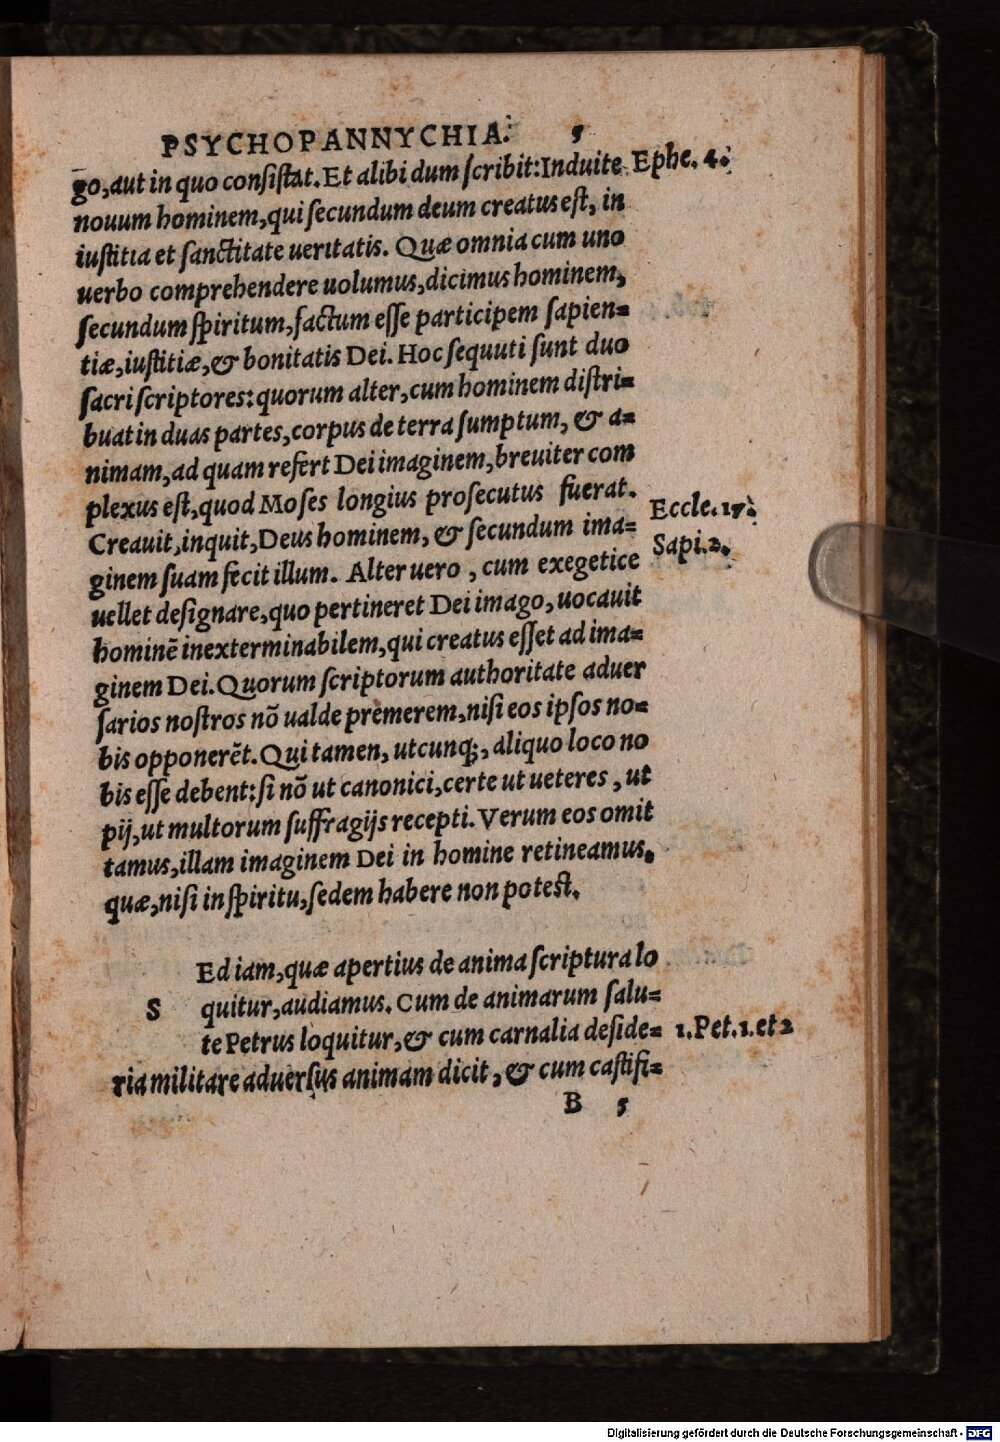 PSYCHOPANNYCHIA. 5
go,aut in quo consistat. Et alibi dum scribit:Induite Ephe. 4.
nouum hominem,qui secundum deum creatus est, in
iustitia et sanctitate ueritatis. Quæ omnia cum uno
uerbo comprehendere uolumus,dicimus hominem,
secundum spiritum,factum esse participem sapien=
tiæ,iustitiæ,& bonitatis Dei. Hoc sequuti sunt duo
sacri scriptores:quorum alter,cum hominem distri=
buat in duas partes,corpus de terra sumptum, & a=
nimam,ad quam refert Dei imaginem,breuiter com
plexus est,quod Moses longius prosecutus fuerat.
Eccle. 17.
Creauit,inquit,Deus hominem, & secundum ima=
Sapi. 2.
ginem suam fecit illum. Alter uero , cum exegetice
uellet designare,quo pertineret Dei imago,uocauit
hominē inexterminabilem,qui creatus esset ad ima=
ginem Dei. Quorum scriptorum authoritate aduer
sarios nostros nō ualde premerem,nisi eos ipsos no=
bis opponerēt. Qui tamen, utcunq;, aliquo loco no
bis esse debent:si nō ut canonici,certe ut ueteres , ut
pij,ut multorum suffragijs recepti. Verum eos omit
tamus,illam imaginem Dei in homine retineamus,
quæ,nisi in spiritu,sedem habere non potest.
Ed iam,quæ apertius de anima scriptura lo
S quitur,audiamus. Cum de animarum salu=
te Petrus loquitur,& cum carnalia deside= 1. Pet. 1. et 2
ria militare aduersus animam dicit, & cum castifi=
B 5
Digitalisierung gefördert durch die Deutsche Forschungsgemeinschaft - DFG